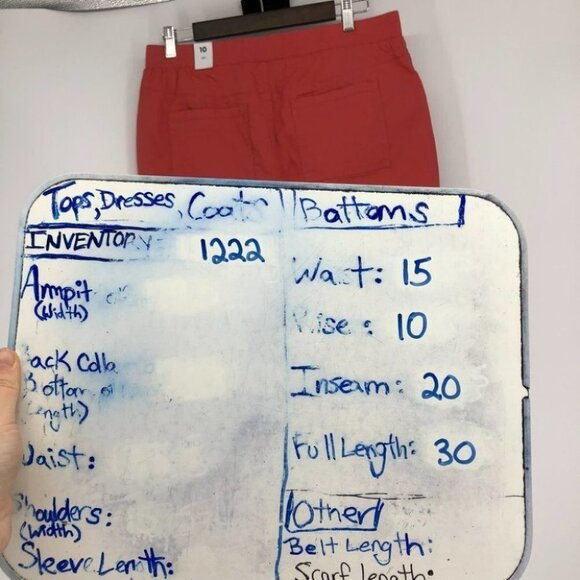 10
Tops, Dresses, Coats
INVENTORY 1222
Armpit
(Width)
Waist:
Shoulders:
(Width)
Sleeve Lenth:
Bottoms
Waist: 15
Rise: 10
Inseam: 20
Full Length: 30
Other
Belt Length:
Scarf Length: